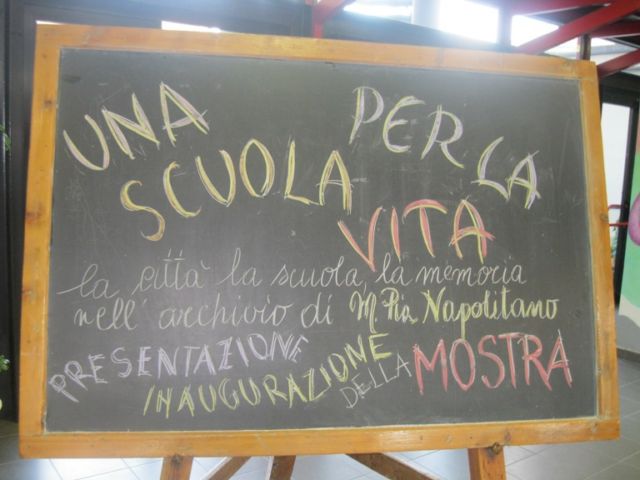 UNA SCUOLA PER LA VITA
la città la scuola, la memoria
nell'archivio di M. Pia Napolitano
PRESENTAZIONE
INAUGURAZIONE DELLA MOSTRA